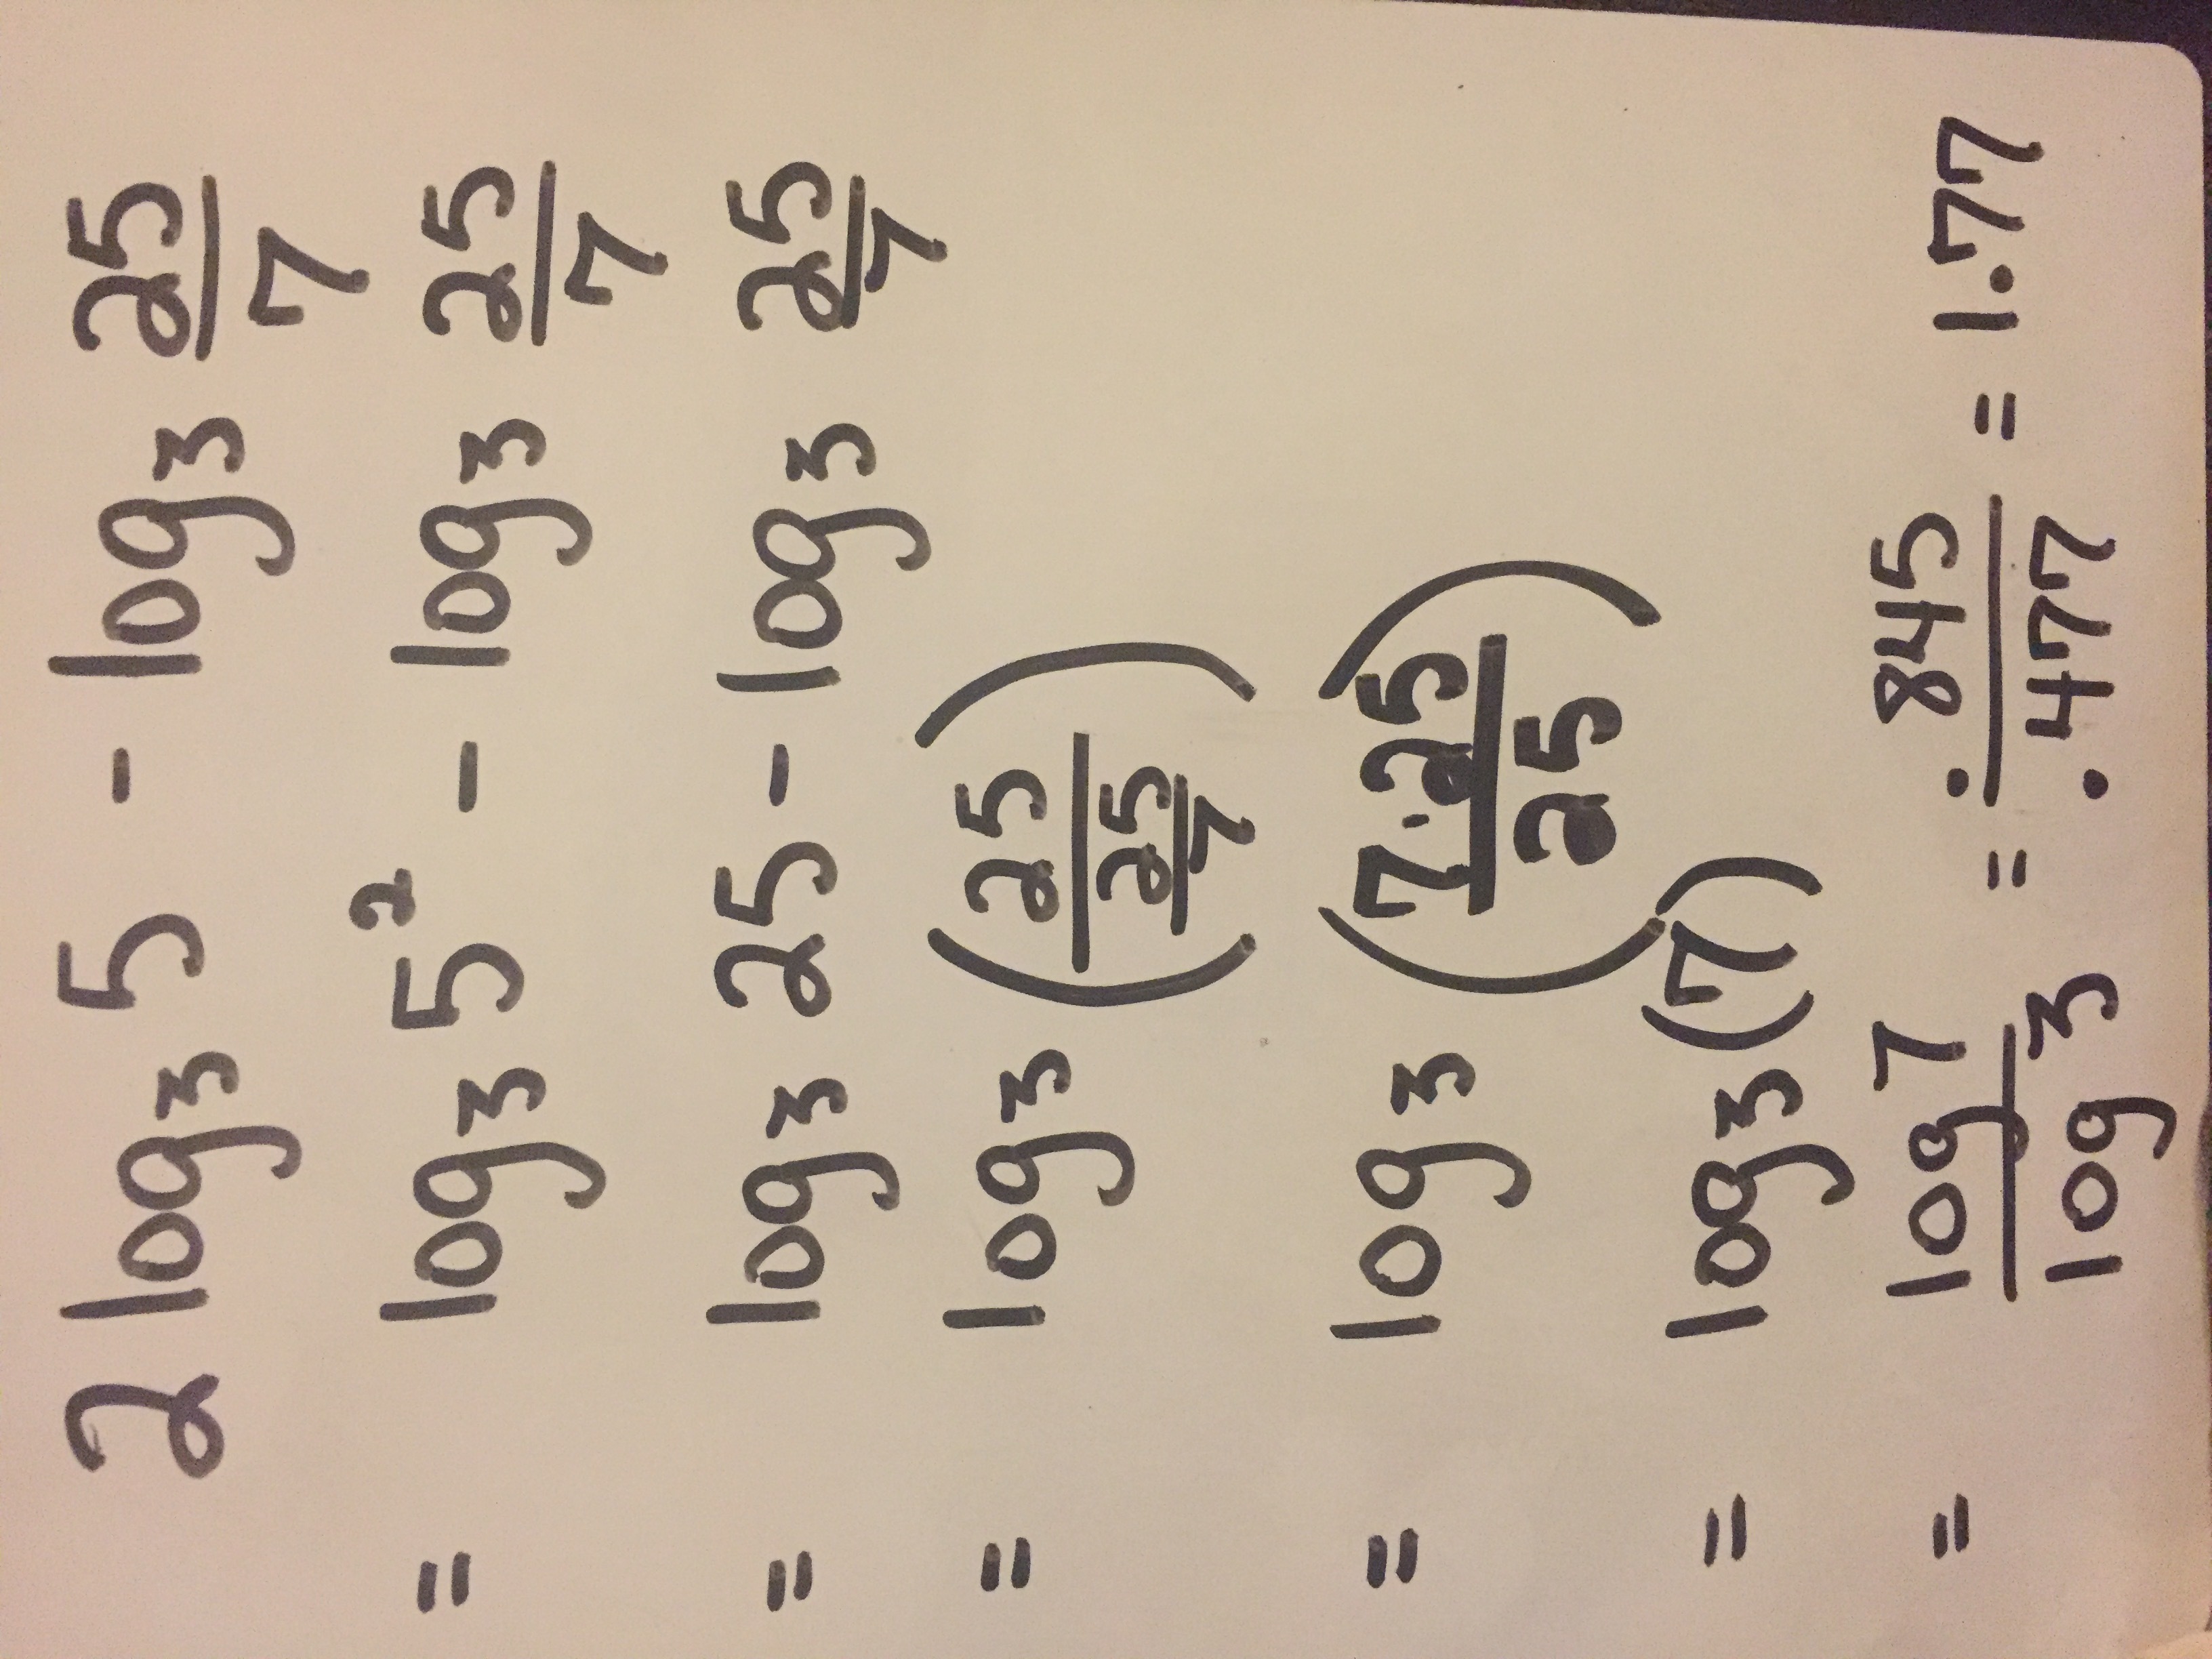 2 log₃ 5 - log₃ 25/7
= log₃ 5² - log₃ 25/7
= log₃ 25 - log₃ 25/7
= log₃ (25/(25/7))
= log₃ (7·25/25)
= log₃ (7)
= log 7/log 3 = .845/.477 = 1.77